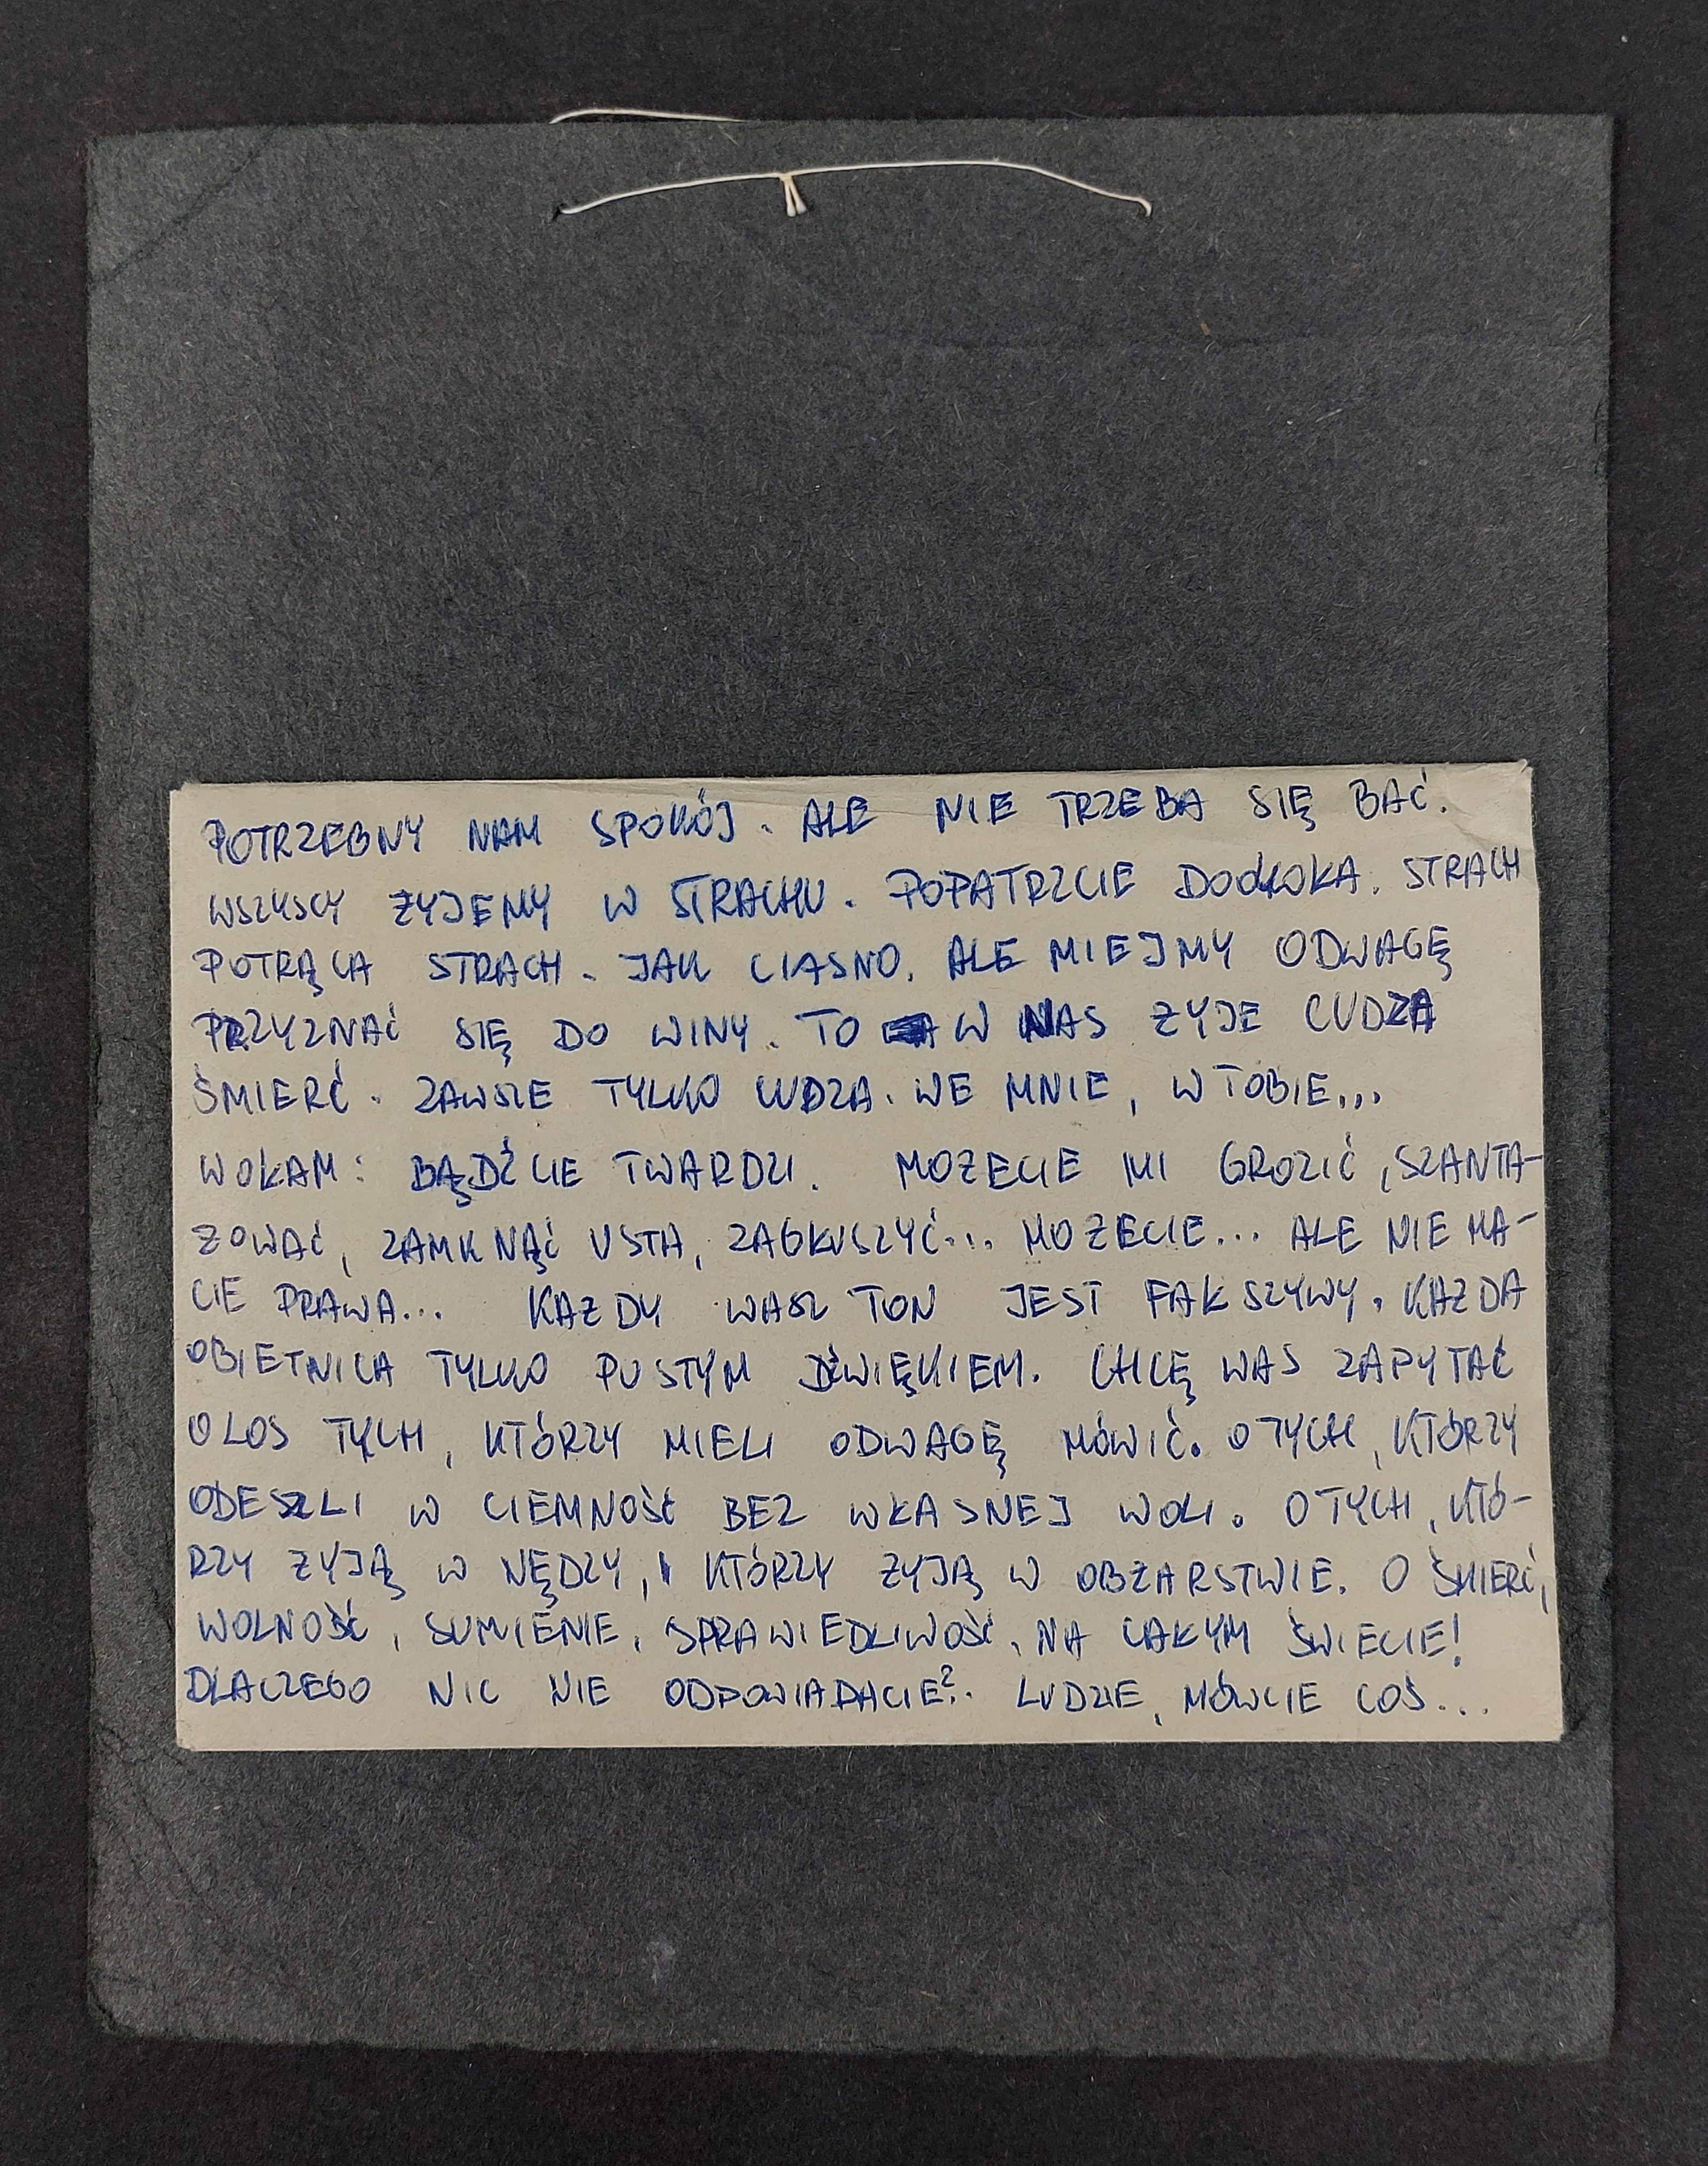 POTRZEBNY NAM SPOKÓJ. ALE NIE TRZEBA SIĘ BAĆ.
WSZYSCY ŻYJEMY W STRACHU. POPATRZCIE DOOKOŁA. STRACH
POTRĄCA STRACH. JAK CIASNO. ALE MIEJMY ODWAGĘ
PRZYZNAĆ SIĘ DO WINY. TO W NAS ŻYJE CUDZA
ŚMIERĆ. ZAWSZE TYLKO CUDZA. WE MNIE, W TOBIE...
WOŁAM: BĄDŹCIE TWARDZI. MOŻECIE MI GROZIĆ, SZANTA-
ŻOWAĆ, ZAMKNĄĆ USTA, ZAGŁUSZYĆ... MOŻECIE... ALE NIE MA-
CIE PRAWA... KAŻDY WASZ TON JEST FAŁSZYWY. KAŻDA
OBIETNICA TYLKO PUSTYM DŹWIĘKIEM. CHCĘ WAS ZAPYTAĆ
O LOS TYCH, KTÓRZY MIELI ODWAGĘ MÓWIĆ. O TYCH, KTÓRZY
ODESZLI W CIEMNOŚĆ BEZ WŁASNEJ WOLI. O TYCH, KTÓ-
RZY ŻYJĄ W NĘDZY, I KTÓRZY ŻYJĄ W OBŻARSTWIE. O ŚMIERĆ,
WOLNOŚĆ, SUMIENIE, SPRAWIEDLIWOŚĆ, NA CAŁYM ŚWIECIE!
DLACZEGO NIC NIE ODPOWIADACIE?.. LUDZIE, MÓWCIE COŚ...